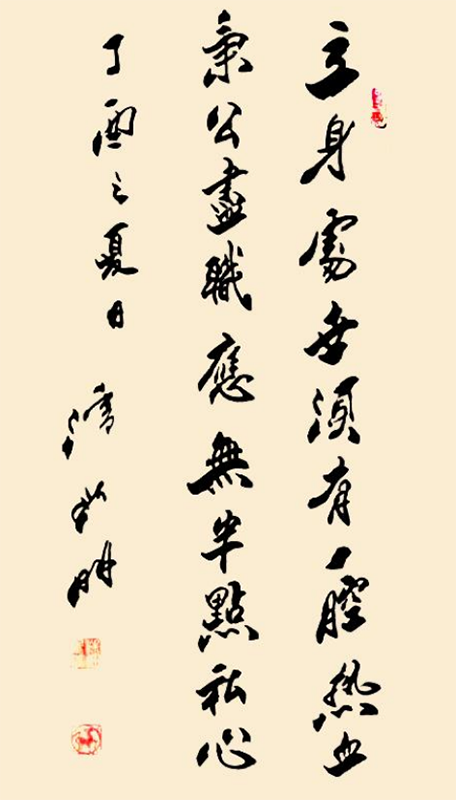 立身處世須有一腔熱血
秉公盡職應無半點私心
丁酉之夏日